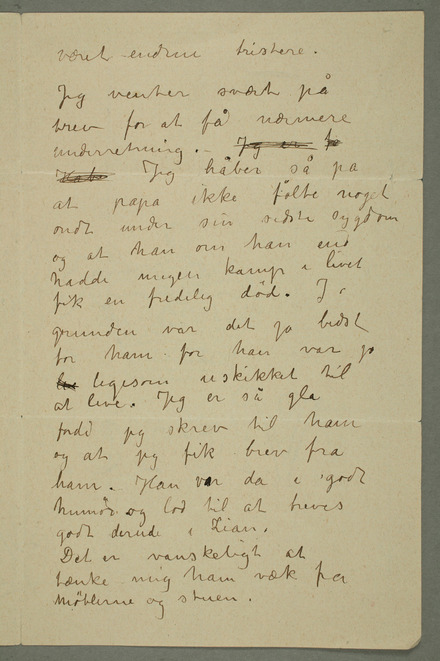 været endnu tristere.
Jeg venter svært på
brev for at få nærmere
underretning. – Jeg er
Jeg håber så på
at papa ikke følte noget
ondt under sin sidste sygdom
og at han om han end
hadde megen kamp i livet
fik en fredelig død. I
grunden var det jo bedst
for ham for han var jo
ligesom uskikket til
at live. Jeg er så gla
fordi jeg skrev til ham
og at jeg fik brev fra
ham. Han var da i godt
humør og lod til at treves
godt derude i Lian.
Det er vanskeligt at
tænke mig ham væk fra
møblerne og stuen.